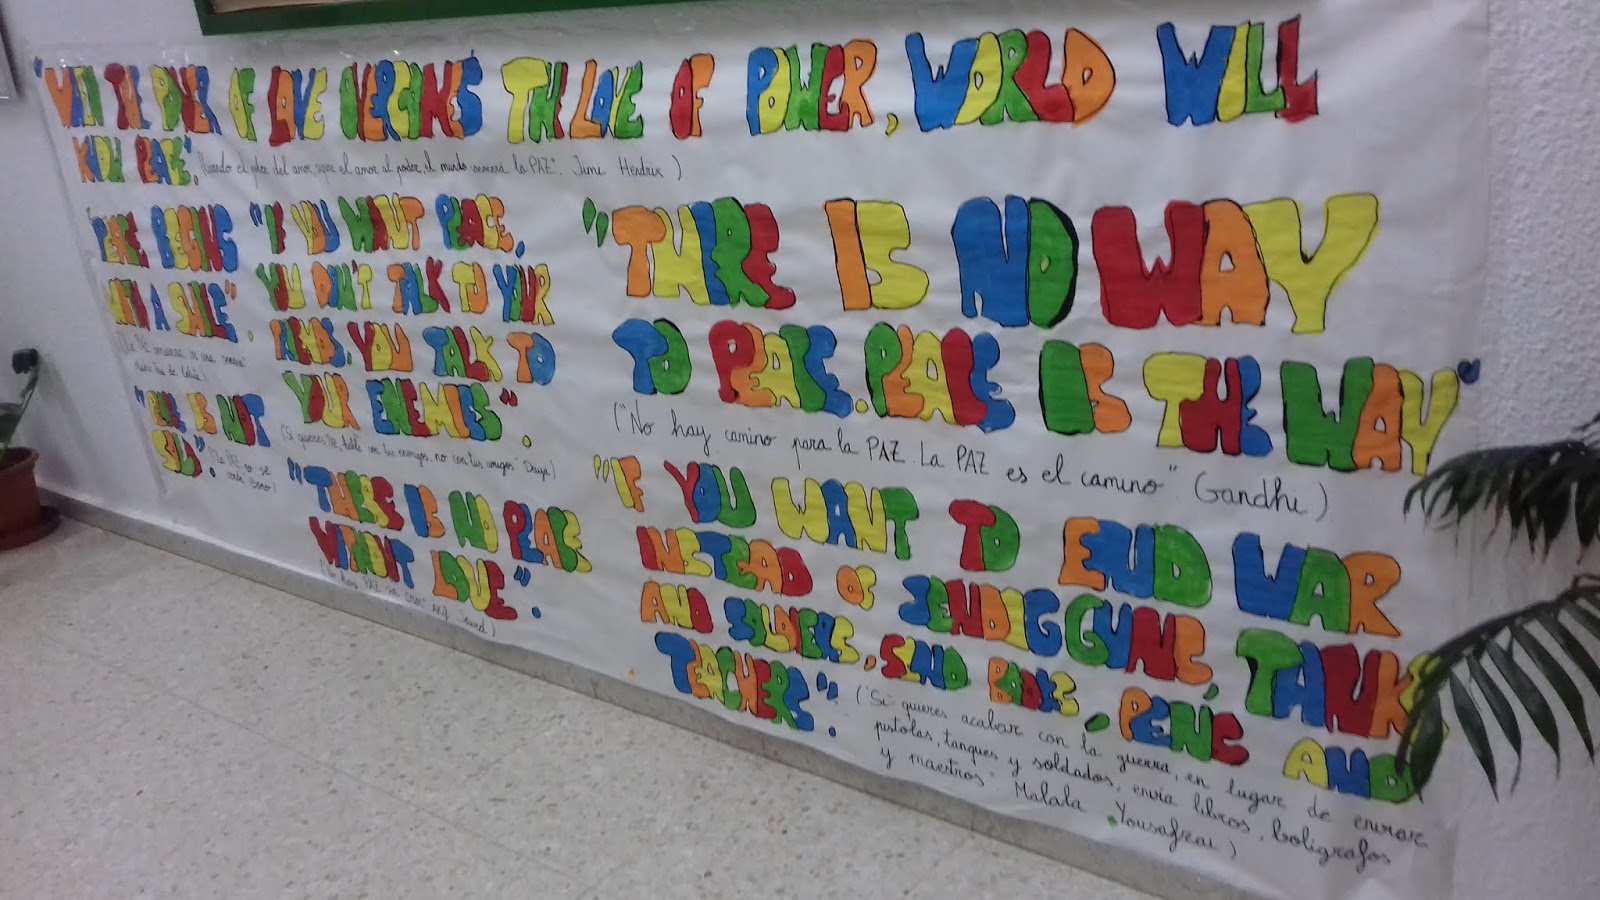 "WHEN THE POWER OF LOVE OVERCOMES THE LOVE OF POWER, WORLD WILL
KNOW PEACE".
(Cuando el poder del amor supere el amor al poder, el mundo conocerá la PAZ". Jimi Hendrix).
"PEACE BEGINS
WITH A SMILE".
(La PAZ comienza con una sonrisa"
"PEACE IS NOT
SOLD".
(La PAZ no se
vende
"IF YOU WANT PEACE,
YOU DON'T TALK TO YOUR
FRIENDS, YOU TALK TO
YOUR ENEMIES".
(Si quieres PAZ, habla con tus enemigos, no con tus amigos"
"THERE IS NO PEACE
WITHOUT LOVE".
(No hay PAZ sin amor"
"THERE IS NO WAY
TO PEACE. PEACE IS THE WAY"
("No hay camino para la PAZ. La PAZ es el camino". (Gandhi)
"IF YOU WANT TO END WAR
INSTEAD OF SENDIGGUNS, TANKS
AND SOLDIERS, SEND BOOKS, PENS AND
TEACHERS".
("Si quieres acabar con la guerra, en lugar de enviar
pistolas, tanques y soldados, envía libros, bolígrafos
y maestros". Malala Yousafzai)